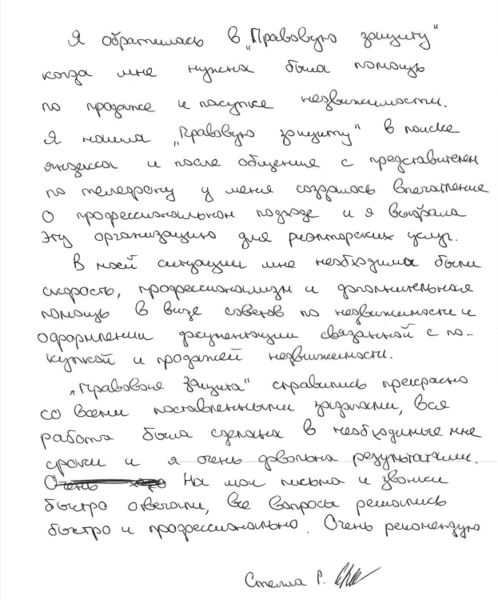 Я обратилась в „Правовую защиту"
когда мне нужна была помощь
по продаже и покупке незвижимости.
Я нашла „Правовую защиту" в поиске
яндекса и после общения с представителем
по телефону у меня создалось впечатление
о профессиональном подходе и я выбрала
эту организацию для риэлторских услуг.
В моей ситуации мне необходимы были
скорость, профессионализм и дополнительная
помощь в визе советов по незвижимости и
оформлении документации связанной с по-
купкой и продажей незвижимости.
„Правовая защита" справились прекрасно
со всеми поставленными задачами, вся
работа была сделана в необходимые мне
сроки и я очень довольна результатами.
Очень На мои письма и звонки
быстро отвечали, все вопросы решались
быстро и профессионально. Очень рекомендую
Стелла Р.